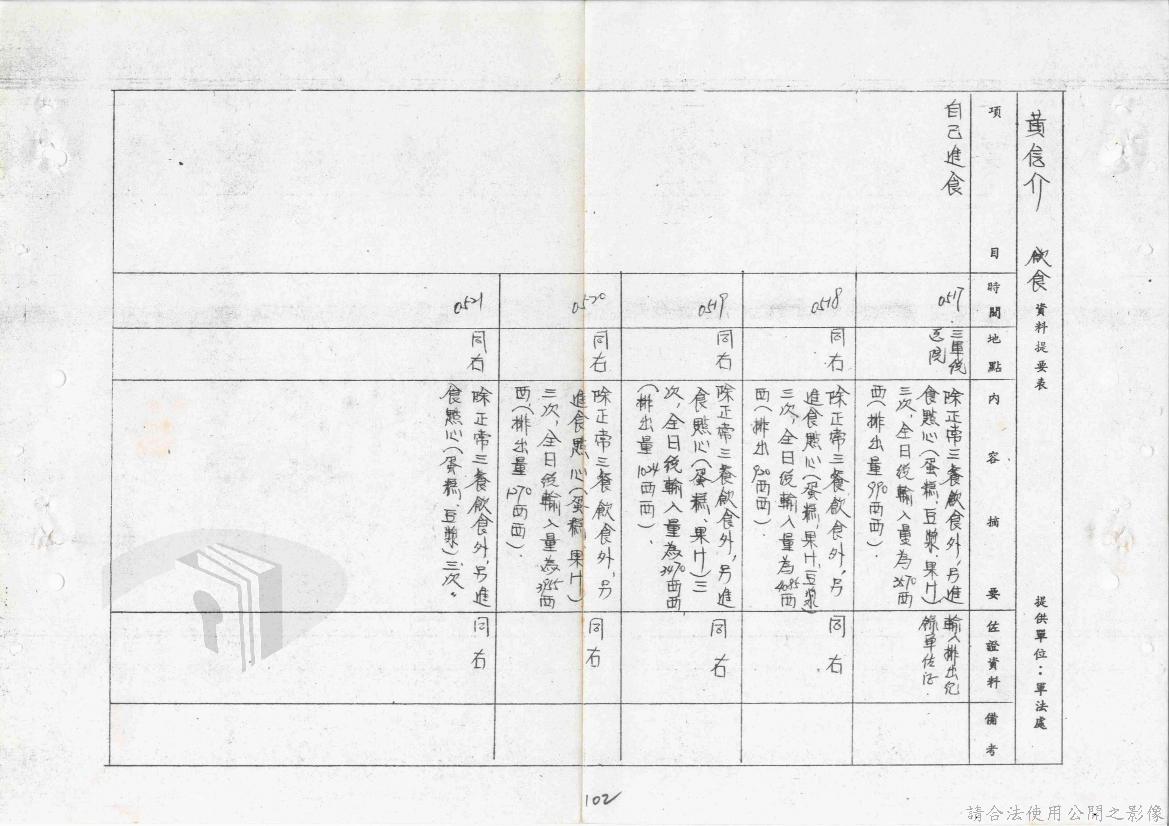 黃信介 飲食 資料提要表 提供單位：軍法處
項目
時間
地點
內容摘要
佐證資料
備考
自己進食
0517
三軍總
醫院
除正常三餐飲食外,另進
食點心(蛋糕.豆漿.果汁)
三次,全日總輸入量為3570西
西(排出量990西西).
輸入排出紀
錄單佐證.
0518
同右
除正常三餐飲食外,另
進食點心(蛋糕,果汁,豆漿)
三次,全日總輸入量為4095西
西(排出920西西)
同右
0519
同右
除正常三餐飲食外,另進
食點心(蛋糕、果汁)三
次,全日總輸入量為3470西西,
(排出量1024西西).
同右
0520
同右
除正常三餐飲食外,另
進食點心(蛋糕,果汁)
三次,全日總輸入量為3955西
西(排出量1270西西).
同右
0521
同右
除正常三餐飲食外,另進
食點心(蛋糕.豆漿)三次。
同右
102
請合法使用公開之影像